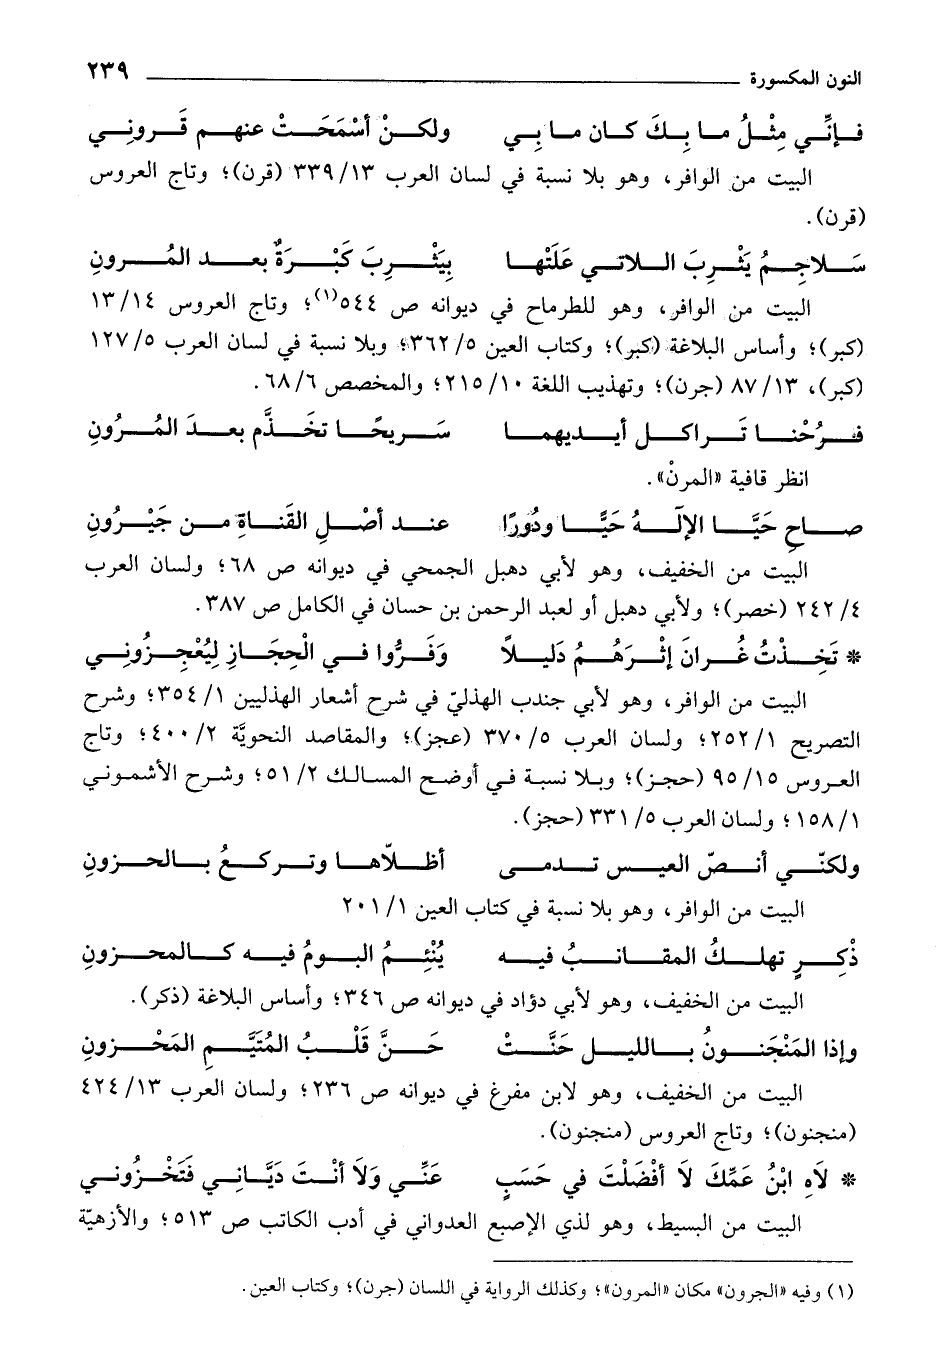 النون المكسورة ٢٣٩
فإنِّي مِثْلُ ما بِكَ كان ما بِي ولكنْ أسْمَحَتْ عنهم قَروني
البيت من الوافر، وهو بلا نسبة في لسان العرب ١٣/ ٣٣٩ (قرن)؛ وتاج العروس
(قرن).
سَلاجِمُ يَثْرِبَ اللاتي عَلَتْها بِيَثْرِبَ كَبْرَةٌ بعد المُرونِ
البيت من الوافر، وهو للطرماح في ديوانه ص ٥٤٤(١)؛ وتاج العروس ١٤/ ١٣
(كبر)؛ وأساس البلاغة (كبر)؛ وكتاب العين ٥/ ٣٦٢؛ وبلا نسبة في لسان العرب ٥/ ١٢٧
(كبر)، ١٣/ ٨٧ (جرن)؛ وتهذيب اللغة ١٠/ ٢١٥؛ والمخصص ٦/ ٦٨.
فرُحْنا تَراكل أيديهما سَريحًا تخَذَّم بعدَ المُرُونِ
انظر قافية «المرنْ».
صاحِ حَيَّا الإلَهُ حَيًّا ودُورًا عند أصْلِ القَناةِ من جَيْرُونِ
البيت من الخفيف، وهو لأبي دهبل الجمحي في ديوانه ص ٦٨؛ ولسان العرب
٤/ ٢٤٢ (خصر)؛ ولأبي دهبل أو لعبد الرحمن بن حسان في الكامل ص ٣٨٧.
* تَخِذْتُ غُرانَ إثْرَهُمُ دَليلاً وَفَرُّوا في الْحِجَازِ لِيُعْجِزُوني
البيت من الوافر، وهو لأبي جندب الهذليّ في شرح أشعار الهذليين ١/ ٣٥٤؛ وشرح
التصريح ١/ ٢٥٢؛ ولسان العرب ٥/ ٣٧٠ (عجز)؛ والمقاصد النحويَّة ٢/ ٤٠٠؛ وتاج
العروس ١٥/ ٩٥ (حجز)؛ وبلا نسبة في أوضح المسالك ٢/ ٥١؛ وشرح الأشموني
١/ ١٥٨؛ ولسان العرب ٥/ ٣٣١ (حجز).
ولكنّي أنصّ العيس تدمى أظلاّها وتركعُ بالحزونِ
البيت من الوافر، وهو بلا نسبة في كتاب العين ١/ ٢٠١
ذْكِرٍ تهلكُ المقانبُ فيه يُنْئِمُ البومُ فيه كالمحزونِ
البيت من الخفيف، وهو لأبي دؤاد في ديوانه ص ٣٤٦؛ وأساس البلاغة (ذكر).
وإذا المَنْجَنونُ بالليل حَنَّتْ حَنَّ قَلْبُ المُتَيَّمِ المَحْزونِ
البيت من الخفيف، وهو لابن مفرغ في ديوانه ص ٢٣٦؛ ولسان العرب ١٣/ ٤٢٤
(منجنون)؛ وتاج العروس (منجنون).
* لَاهِ ابْنُ عَمِّكَ لَا أفْضَلْتَ في حَسَبٍ عَنِّي وَلَا أنْتَ دَيَّانِي فَتَخْزُوني
البيت من البسيط، وهو لذي الإصبع العدواني في أدب الكاتب ص ٥١٣؛ والأزهيّة
(١) وفيه «الجرون» مكان «المرون»؛ وكذلك الرواية في اللسان (جرن)؛ وكتاب العين.